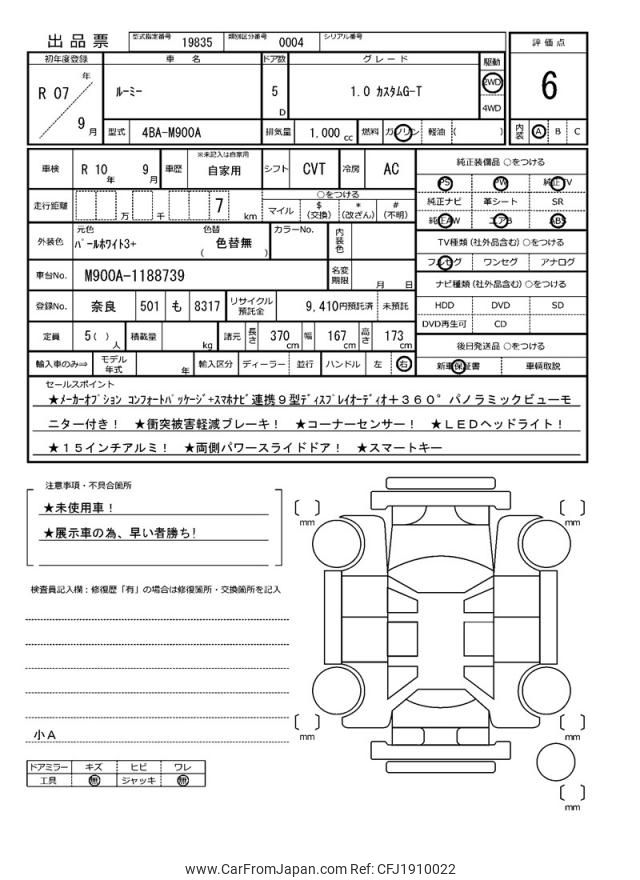 出品票 型式指定番号 19835 類別区分番号 0004 シリアル番号
評価点
6
内装 A B C
初年度登録 車名 ドア数 グレード 駆動
R 07 年 9 月
ルーミー 5 D 1.0 カスタムG-T 2WD 4WD
型式 4BA-M900A 排気量 1.000 cc 燃料 ガソリン 軽油 ( )
車検 R 10 年 9 月 車歴 ※未記入は自家用 自家用 シフト CVT 冷房 AC
走行距離 万 千 7 km
○をつける
マイル $(交換) *(改ざん) #(不明)
外装色 元色 パールホワイト3+ 色替 ( 色替無 ) カラーNo. 内装色
車台No. M900A-1188739 名変期限 月 日
登録No. 奈良 501 も 8317 リサイクル預託金 9,410円預託済 未預託
定員 5( ) 人 積載量 kg 諸元 長さ 370 cm 幅 167 cm 高さ 173 cm
輸入車のみ⇒ モデル年式 年 輸入区分 ディーラー 並行 ハンドル 左 右
純正装備品 ○をつける
PS PW 純正TV
純正ナビ 革シート SR
純正AW エアB ABS
TV種類 (社外品含む) ○をつける
フルセグ ワンセグ アナログ
ナビ種類 (社外品含む) ○をつける
HDD DVD SD
DVD再生可 CD
後日発送品 ○をつける
新車保証書 車輌取説
セールスポイント
★メーカーオプション コンフォートパッケージ+スマホナビ連携9型ディスプレイオーディオ+360°パノラミックビューモ
ニター付き! ★衝突被害軽減ブレーキ! ★コーナーセンサー! ★LEDヘッドライト!
★15インチアルミ! ★両側パワースライドドア! ★スマートキー
注意事項・不具合箇所
★未使用車!
★展示車の為、早い者勝ち!
検査員記入欄:修復歴「有」の場合は修復箇所・交換箇所を記入
小A
ドアミラー キズ ヒビ ワレ
工具 無 ジャッキ 無
[ ] mm
[ ] mm
[ ] mm
[ ] mm
[ ] mm
www.CarFromJapan.com Ref: CFJ1910022